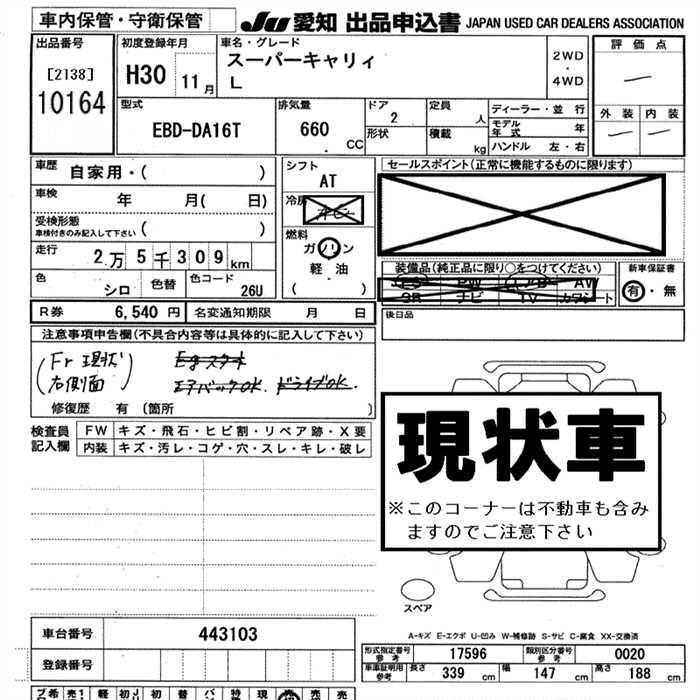 車内保管・守衛保管
JU 愛知 出品申込書 JAPAN USED CAR DEALERS ASSOCIATION
出品番号
[2138]
10164
初度登録年月
H30 11月
車名・グレード
スーパーキャリィ
L
2WD
・
4WD
評価点
外装 内装
型式
EBD-DA16T
排気量
660 CC
ドア
2
形状
定員 人
積載 kg
ディーラー・並行
モデル年式 年
ハンドル 左・右
車歴
自家用・( )
車検 年 月( 日)
受検形態
車検付きのみ記入して下さい ( )
走行 2万5千309km
色 シロ 色替 色コード 26U
シフト
AT
冷房
燃料
ガソリン
軽油
( )
セールスポイント(正常に機能するものに限ります)
装備品(純正品に限り○をつけてください)
PW AW
SR ナビ TV カワシート
新車保証書
有・無
後日品
R券 6,540円 名変通知期限 月 日
注意事項申告欄(不具合内容等は具体的に記入して下さい)
(Fr現状 右側面)
Egスタート
エアバックOK. ドライブOK.
修復歴 有 〔箇所 〕
検査員記入欄
FW キズ・飛石・ヒビ割・リペア跡・X要
内装 キズ・汚レ・コゲ・穴・スレ・キレ・破レ
現状車
※このコーナーは不動車も含み
ますのでご注意下さい
スペア
A-キズ E-エクボ U-凹み W-補修跡 S-サビ C-腐食 XX-交換済
車台番号 443103
登録番号
型式指定番号 参考 17596 類別区分番号 参考 0020
車庫証明用 参考 長さ 339 cm 幅 147 cm 高さ 188 cm